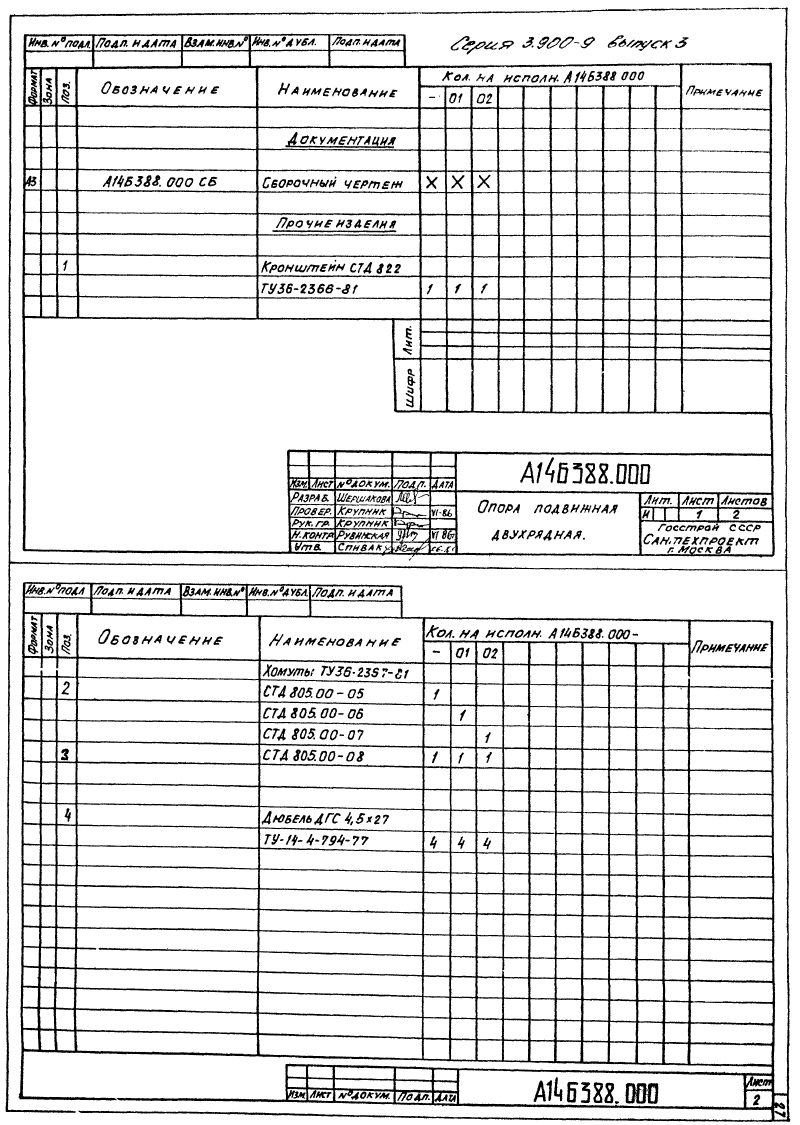 Серия 3.900-9 выпуск 3
Инв. № подл. Подп. и дата Взам. инв. № Инв. № дубл. Подп. и дата
Формат Зона Поз. Обозначение Наименование Кол. на исполн. А14Б388 000 Примечание
- 01 02
Документация
А3 А14Б388.000 СБ Сборочный чертеж X X X
Прочие изделия
1 Кронштейн СТД 822
ТУ36-2366-81 1 1 1
Лит.
Шифр
А14Б388.000
Изм. Лист № докум. Подп. Дата
Разраб. Шершакова
Провер. Крупник VI-86
Рук. гр. Крупник
Н.контр Рувинская VI 86
Утв. Спивак
Опора подвижная
двухрядная.
Лит. Лист Листов
И 1 2
Госстрой СССР
Сантехпроект
г. Москва
Инв. № подл Подп. и дата Взам. инв. № Инв. № дубл Подп. и дата
Формат Зона Поз. Обозначение Наименование Кол. на исполн. А14Б388.000- Примечание
- 01 02
Хомуты ТУ36-2357-81
2 СТД 805.00-05 1
СТД 805.00-06 1
СТД 805.00-07 1
3 СТД 805.00-08 1 1 1
4 Дюбель ДГС 4,5х27
ТУ-14-4-794-77 4 4 4
Изм. Лист № докум. Подп. Дата
А14Б388.000
Лист
2
27